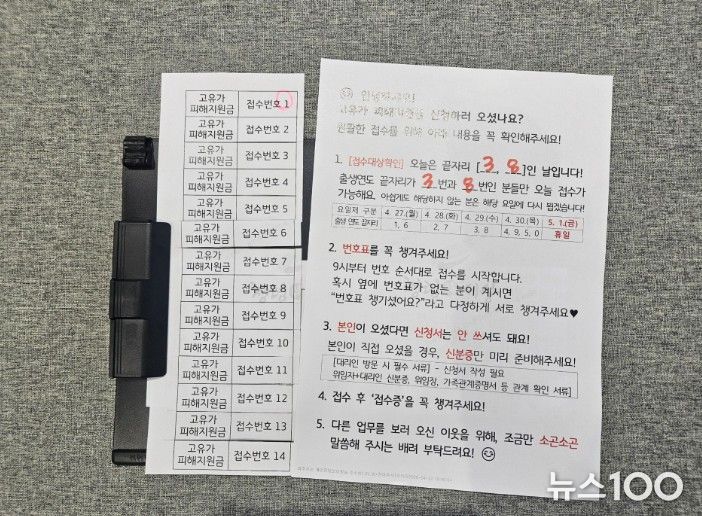 고유가 피해지원금 접수번호 1
고유가 피해지원금 접수번호 2
고유가 피해지원금 접수번호 3
고유가 피해지원금 접수번호 4
고유가 피해지원금 접수번호 5
고유가 피해지원금 접수번호 6
고유가 피해지원금 접수번호 7
고유가 피해지원금 접수번호 8
고유가 피해지원금 접수번호 9
고유가 피해지원금 접수번호 10
고유가 피해지원금 접수번호 11
고유가 피해지원금 접수번호 12
고유가 피해지원금 접수번호 13
고유가 피해지원금 접수번호 14
고유가 피해지원금 신청하러 오셨나요?
원활한 접수를 위해 아래 내용을 꼭 확인해주세요!
1. [접수대상확인] 오늘은 끝자리 [3, 8]인 날입니다!
출생연도 끝자리가 3번과 8번인 분들만 오늘 접수가
가능해요. 아쉽게도 해당하지 않는 분은 해당 요일에 다시 뵙겠습니다!
요일제 구분 4. 27.(월) 4. 28.(화) 4. 29.(수) 4. 30.(목) 5. 1.(금)
출생 연도 끝자리 1, 6 2, 7 3, 8 4, 9, 5, 0 휴일
2. 번호표를 꼭 챙겨주세요!
9시부터 번호 순서대로 접수를 시작합니다.
혹시 옆에 번호표가 없는 분이 계시면
"번호표 챙기셨어요?"라고 다정하게 서로 챙겨주세요♥
3. 본인이 오셨다면 신청서는 안 쓰셔도 돼요!
본인이 직접 오셨을 경우, 신분증만 미리 준비해주세요!
[대리인 방문 시 필수 서류] - 신청서 작성 필요
위임자+대리인 신분증, 위임장, 가족관계증명서 등 관계 확인 서류]
4. 접수 후 '접수증'을 꼭 챙겨주세요!
5. 다른 업무를 보러 오신 이웃을 위해, 조금만 소곤소곤
말씀해 주시는 배려 부탁드려요!
뉴스100